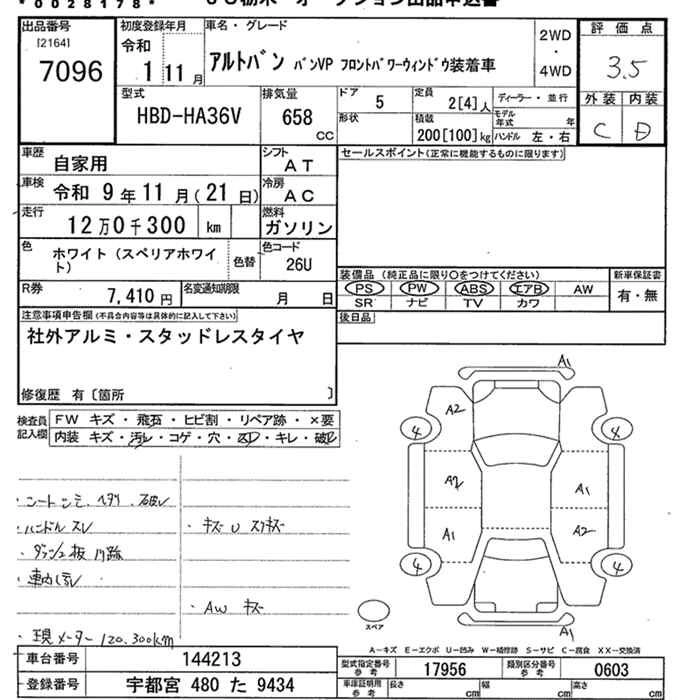 *0028178*
出品番号 [2164] 7096
初度登録年月 令和 1 11月
車名・グレード アルトバン バンVP フロントパワーウィンドウ装着車
2WD・4WD
評価点 3.5
外装 内装
C D
型式 HBD-HA36V
排気量 658 CC
ドア 5
定員 2[4]人
ディーラー・並行
形状
積載 200[100]kg
モデル年式 年
ハンドル 左・右
車歴 自家用
シフト AT
セールスポイント(正常に機能するものに限ります)
車検 令和 9年11月(21日)
冷房 AC
走行 12万0千300 km
燃料 ガソリン
色 ホワイト(スペリアホワイト)
色替
色コード 26U
R券 7,410円
名変通知期限 月 日
装備品(純正品に限り○をつけてください)
PS PW ABS エアB AW
SR ナビ TV カワ
新車保証書 有・無
後日品
注意事項申告欄(不具合内容等は具体的に記入して下さい)
社外アルミ・スタッドレスタイヤ
修復歴 有〔箇所 〕
検査員記入欄
FW キズ・飛石・ヒビ割・リペア跡・×要
内装 キズ・汚レ・コゲ・穴・凹・キレ・破レ
・ハンドル スレ
・キズ U スリキズ
・AW キズ
・現メーター 120.300km
A1
A2
4 4
A2 A1
A1 A2
4 4
A1
スペア
A-キズ E-エクボ U-凹み W-補修跡 S-サビ C-腐食 XX-交換済
車台番号 144213
型式指定番号 参考 17956
類別区分番号 参考 0603
登録番号 宇都宮 480 た 9434
車庫証明用 参考 長さ cm 幅 cm 高さ cm